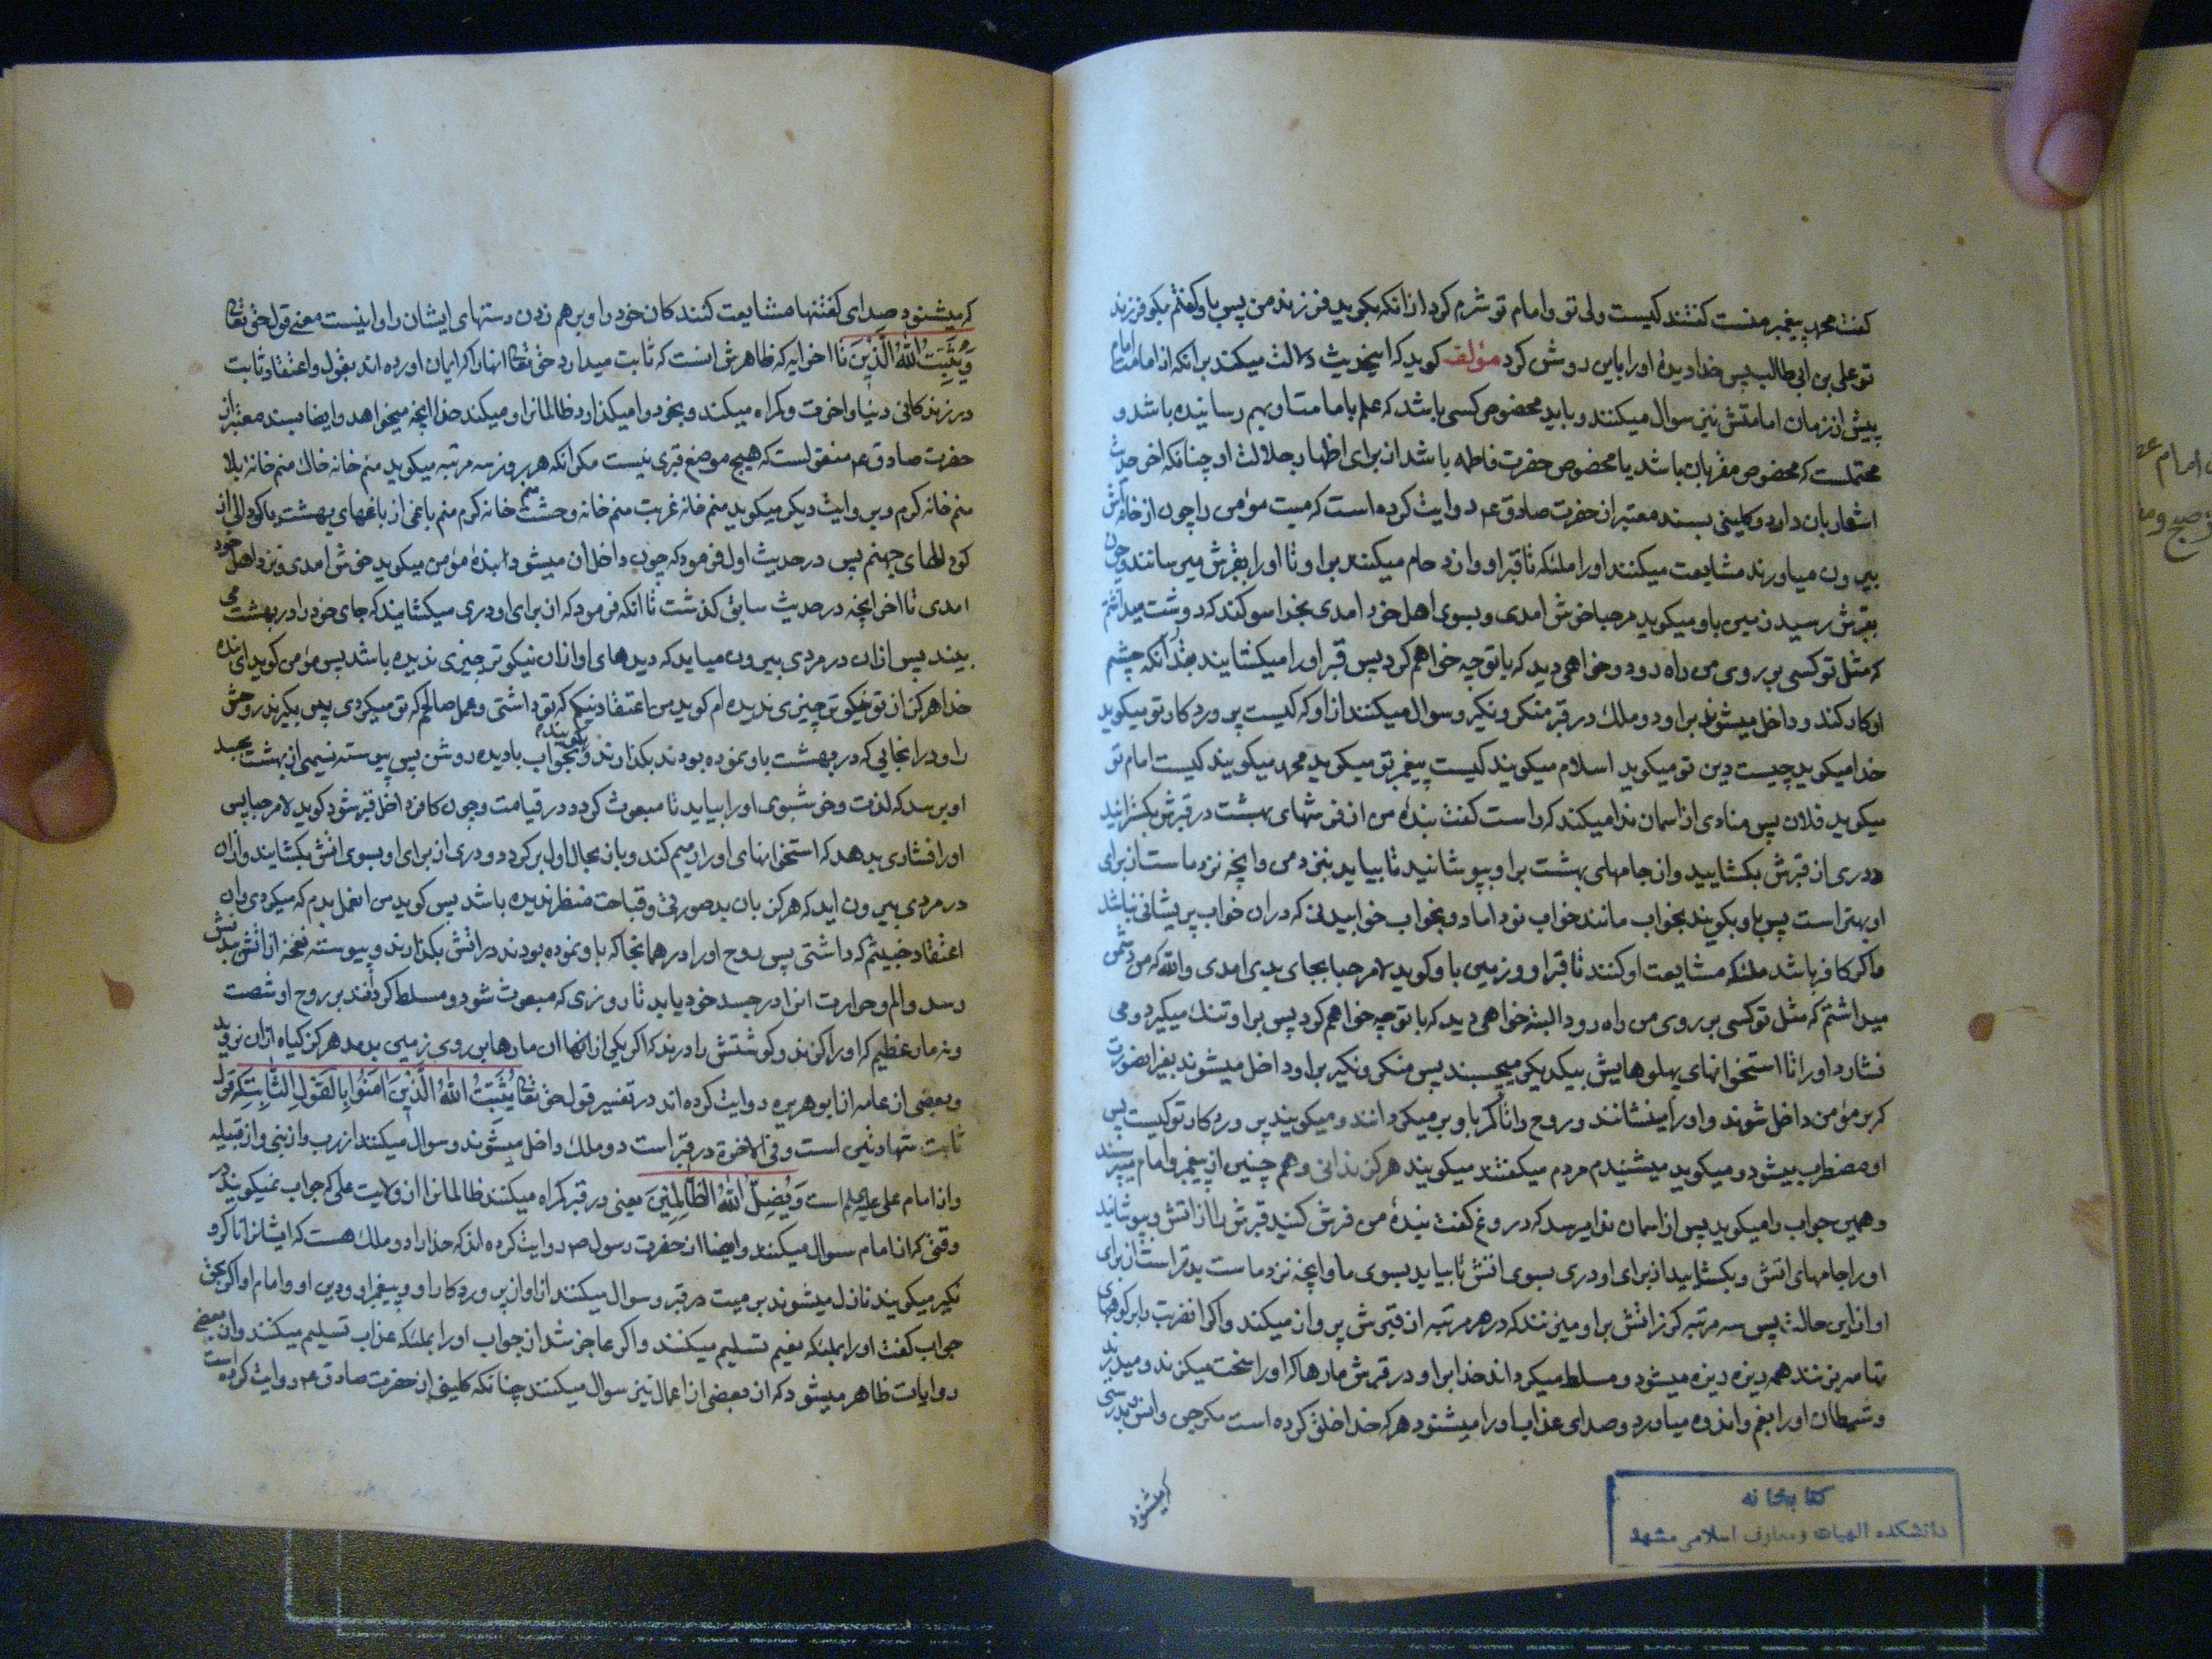 کفت محمد پیغمبر منست کفتند کیست ولی تو و امام تو شرم کرد ازانکه بکوید فرزند من پس باو کفتم بکو فرزند
تو علی بن ابی طالب پس خدا دیدهٔ اورا باین روشن کرد مؤلف کوید که اینحدیث دلالت میکند برانکه از امامت امام
پیش از زمان امامتش نیز سوال میکنند و باید مخصوص کسی باشد که علم بامامت او بهم رسانیده باشد و
محتملست که مخصوص مقربان باشد یا مخصوص حضرت فاطمه باشد از برای اظهار جلالت او چنانکه اخر حدیث
اشعار بان دارد و کلینی بسند معتبر از حضرت صادق ع م روایت کرده است که میت مؤمن را چون از خانه اش
بیرون میاورند مشایعت میکنند اورا ملئکه تا قبر او و ازدحام میکنند براو تا اورا بقبرش میرسانند و چون
بقبرش رسید زمین باو میکوید مرحبا خوش امدی و بسوی اهل خود امدی بخدا سوکند که دوست میداشتم
که مثل تو کسی بر روی من راه رود و خواهی دید که با تو چه خواهم کرد پس قبر اورا میکشایند بقدر انکه چشم
او کار کند و داخل میشوند براو دو ملک در قبر منکر و نکیر و سوال میکنند از او که کیست پرورد کار تو میکوید
خدا میکوید چیست دین تو میکوید اسلام میکویند کیست پیغمبر تو میکوید محمد میکویند کیست امام تو
میکوید فلان پس منادی از اسمان ندا میکند که راست کفت بندهٔ من از فرشهای بهشت در قبرش بکسترانید
و دری از قبرش بکشایید و از جامهای بهشت براو بپوشانید تا بیاید بنزد من و انچه نزد ماست از برای
او بهتر است پس باو بکویند بخواب مانند خواب نو داماد و بخواب خوابیدنی که دران خواب پریشانی نباشد
و اکر کافر باشد ملئکه مشایعت او کنند تا قبر او و زمین باو کوید لا مرحبا بجای بدی امدی والله که من دشمن
میداشتم که مثل تو کسی بر روی من راه رود البته خواهی دید که با تو چه خواهم کرد پس براو تنک میکیرد و می
فشارد اورا تا استخوانهای پهلوهایش بیکدیکر میچسبند پس منکر و نکیر براو داخل میشوند بغیر انصورت
که بر مؤمن داخل شوند و اورا مینشانند و روح را تا کمر باو بر میکردانند و میکویند پرورد کار تو کیست پس
او مضطرب میشود و میکوید میشنیدم مردم میکفتند میکویند هرکز ندانی و هم چنین از پیغمبر و امام میپرسند
و همین جواب را میکوید پس از اسمان ندا میرسد که دروغ کفت بندهٔ من فرش کنید قبرش را از اتش و بپوشانید
اورا جامهای اتش و بکشایید از برای او دری بسوی اتش تا بیاید بسوی ما و انچه نزد ماست بدتر است از برای
او از این حالت پس سه مرتبه کرز اتش براو میزنند که در هر مرتبه از قبرش اتش پروان میکند و اکر انضربت را بر کوههای
تهامه بزنند همه ریزه ریزه میشود و مسلط میکرداند خدا براو در قبرش مارها که اورا سخت میکزند و میدرند
و شیطان اورا بغم و اندوه میاورد و صدای عذاب اورا میشنود هرکه خدا خلق کرده است مکر جن و انس بدرستی
که میشنود
کتابخانه
دانشکده الهیات و معارف اسلامی مشهد
که میشنود صدای کفشهای مشایعت کنندکان خود را و برهم زدن دستهای ایشان را و اینست معنی قول حق تعالی
وَیُثَبِّتُ اللهُ الَّذِینَ تا اخر ایه که ظاهرش انست که ثابت میدارد حق تعالی انها را که ایمان اورده اند بقول و اعتقاد ثابت
در زندکانی دنیا و اخرت و کمراه میکند و بخود وا میکذارد ظالمانرا و میکند خدا انچه میخواهد و ایضا بسند معتبر از
حضرت صادق ع م منقولست که هیچ موضع قبری نیست مکر انکه هر روز سه مرتبه میکوید منم خانه خاک منم خانهٔ بلا
منم خانه کرم و بروایت دیکر میکوید منم خانه غربت منم خانه وحشت منم خانه کرم منم باغی از باغهای بهشت یا کودالی از
کودالهای جهنم پس در حدیث اول فرمود که چون داخل ان میشود بندهٔ مؤمن میکوید خوش امدی و نزد اهل خود
امدی تا اخر انچه در حدیث سابق کذشت تا انکه فرمود که از برای او دری میکشایند که جای خود را در بهشت می
بیند پس ازان در مردی بیرون میاید که دیدهای او ازان نیکوتر چیزی ندیده باشد پس مؤمن کوید ای بنده
خدا هرکز از تو نیکوتر چیزی ندیده ام کوید من اعتقاد نیکم که تو داشتی و عمل صالحم که تو میکردی پس بکیرند روحش
را و درانجایی که در بهشت باو نموده بودند بکذارند و بکویند بخواب با دیده روشن پس پیوسته نسیمی از بهشت بجسد
او برسد که لذت و خوشبوی اورا بیابد تا مبعوث کردد در قیامت و چون کافر داخل قبر شود کوید لا مرحبا پس
اورا فشاری بدهد که استخوانهای اورا رمیم کند و باز بحال اول بر کردد و دری از برای او بسوی اتش بکشایند و ازان
در مردی بیرون اید که هرکز بان بد صورتی و قباحت منظر ندیده باشد پس کوید من ان عمل بدم که میکردی و ان
اعتقاد خبیثم که داشتی پس روح اورا در همانجا که باو نموده بودند در اتش بکذارند و پیوسته نفخهٔ از اتش ببدنش
رسد و الم و حرارت انرا در جسد خود یابد تا روزی که مبعوث شود و مسلط کردانند بر روح او شصت
و نه مار عظیم که اورا کزند و کوشتش را درند که اکر یکی از ان مارها بر روی زمین بدمد هرکز کیاه ازان نروید
و بعضی از عامه از ابو هریره روایت کرده اند در تفسیر قول حق تعالی یُثَبِّتُ اللهُ الَّذِینَ اٰمَنُوا بِالقَوْلِ الثَّابِتِ که قول
ثابت شهادتین است و فی الاخرة در قبر است دو ملک داخل میشوند و سوال میکنند از رب و از نبی و از قبیله
و از امام علی علیه السلم است وَیُضِلُّ اللهُ الظّالِمِینَ یعنی در قبر کمراه میکنند ظالمانرا از ولایت علی که جواب نمیکویند در
وقتی که از امام سوال میکنند و ایضا از حضرت رسول ص روایت کرده اند که خدا را دو ملک هست که ایشانرا ناکر و
نکیر میکویند نازل میشوند بر میت در قبر و سوال میکنند از او از پرورد کار او و پیغمبر او و دین او و امام او اکر بحق
جواب کفت اورا بملئکه نعیم تسلیم میکنند و اکر عاجز شد از جواب اورا بملئکه عذاب تسلیم میکنند و از بعضی
روایات ظاهر میشود که از بعضی از اعمال نیز سوال میکنند چنانکه کلینی از حضرت صادق ع م روایت کرده است